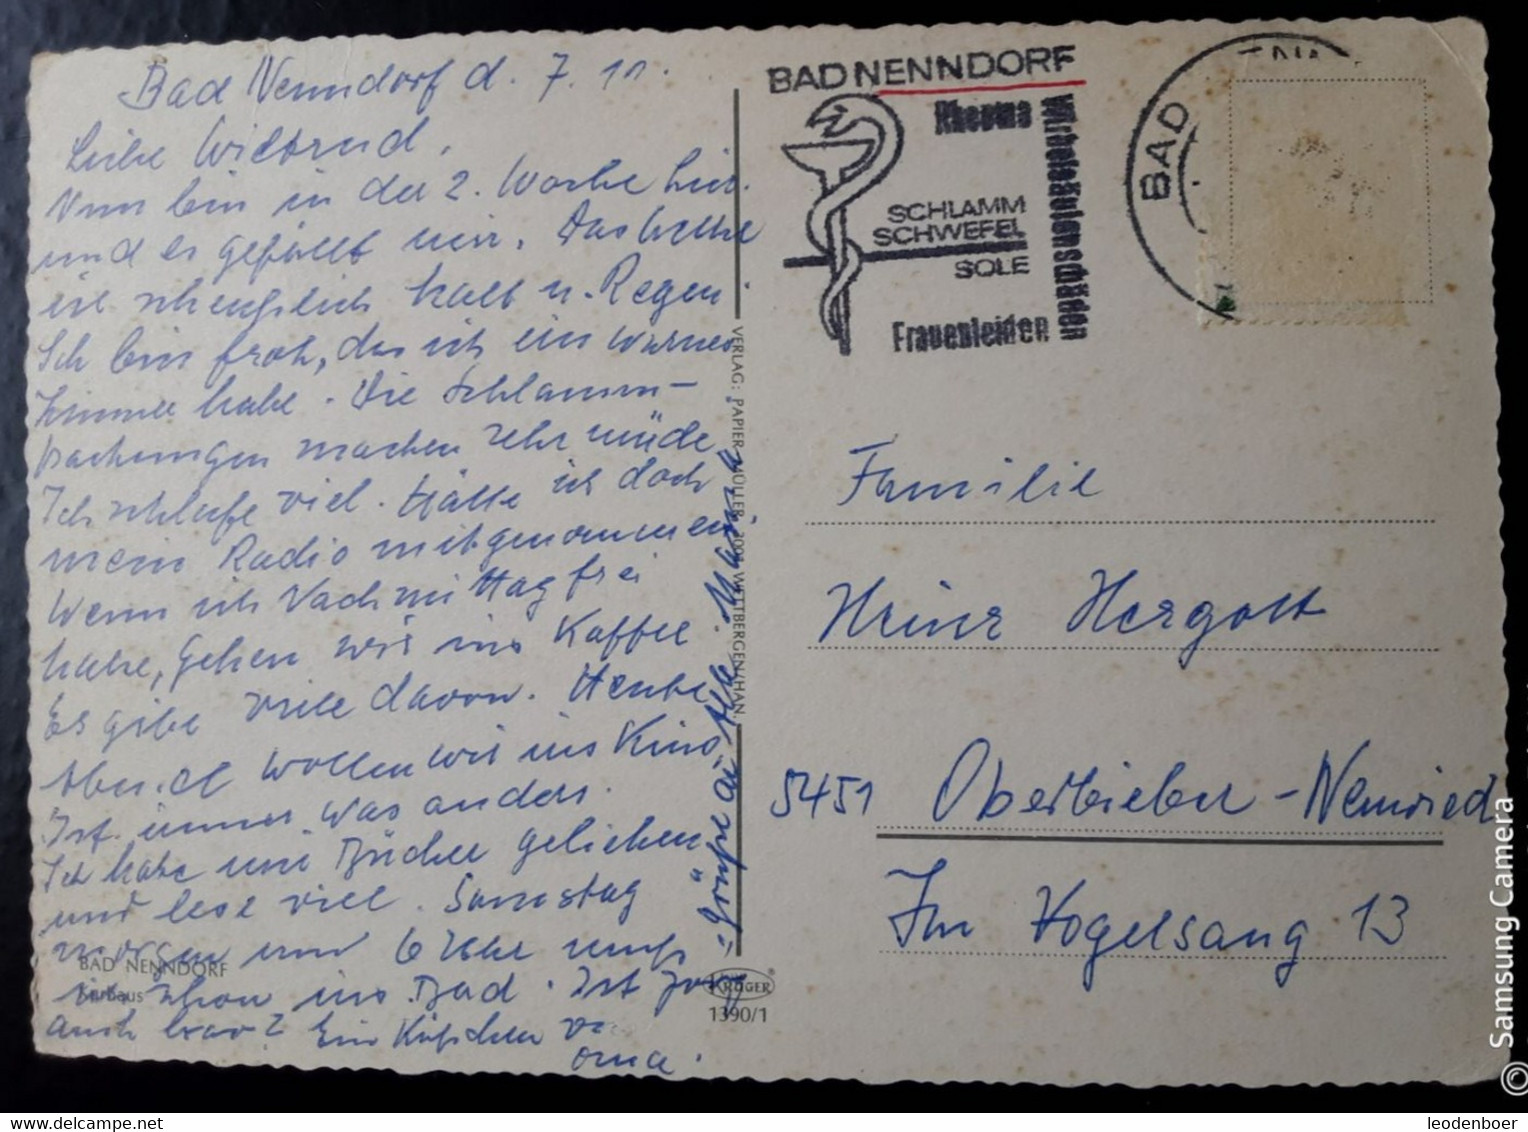 Bad Nenndorf d. 7. 11.
Liebe Wiltrud,
Nun bin in der 2. Woche hier
und es gefällt mir. Das Wetter
ist scheuslich kalt u. Regen.
Ich bin froh, das ich ein warmes
Zimmer habe. Die Schlamm-
packungen machen sehr müde
Ich schlafe viel. Hätte ich doch
mein Radio mitgenommen
Wenn ich Nachmittag frei
habe, gehen wir ins Kaffee
Es gibt viele davon. Heute
Abend wollen wir ins Kino
Ist immer was anders.
Ich habe mir Bücher geliehen
und lese viel. Samstag
morgen um 6 Uhr muß
ich schon ins Bad. Ist Jörg
auch brav? Ein Küßchen v.
Oma.
Grüße an Alle
BAD NENNDORF
Kurhaus
VERLAG: PAPIER-MÜLLER 3001 WETTBERGEN/HAN.
KRÜGER
1390/1
BAD NENNDORF
Rheuma
Wirbelsäulenschäden
SCHLAMM
SCHWEFEL
SOLE
Frauenleiden
BAD
Familie
Heinz Hergott
5451 Oberbieber-Neuwied
Im Vogelsang 13
© Samsung Camera
delcampe.net
leodenboer